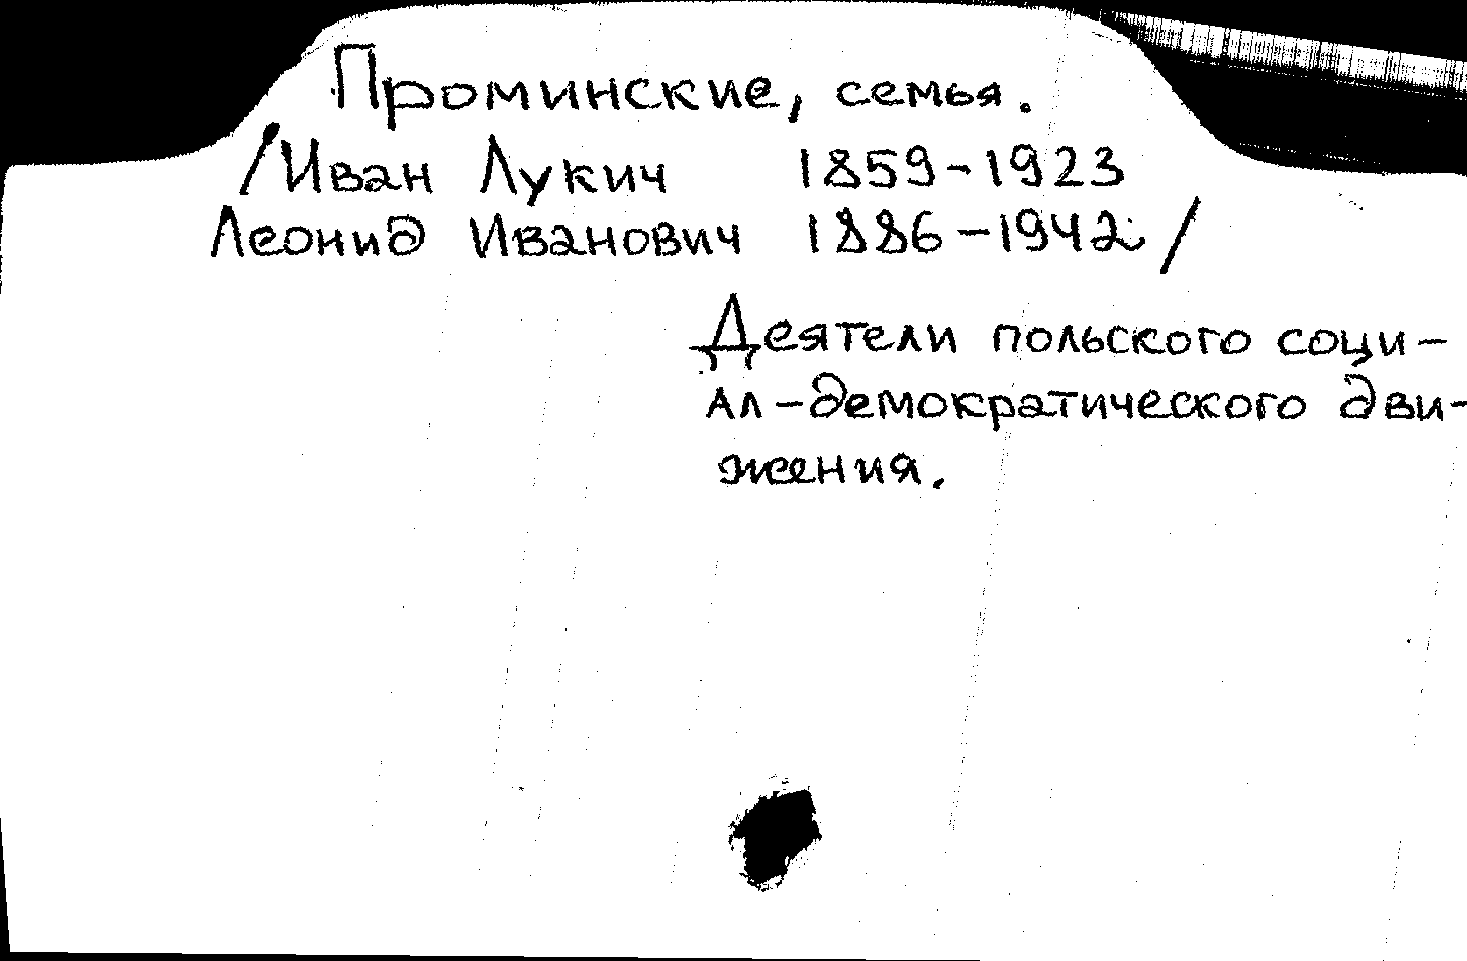 Проминские, семья.
/Иван Лукич 1859-1923
Леонид Иванович 1886-1942/
Деятели польского соци-
ал-демократического дви-
жения.